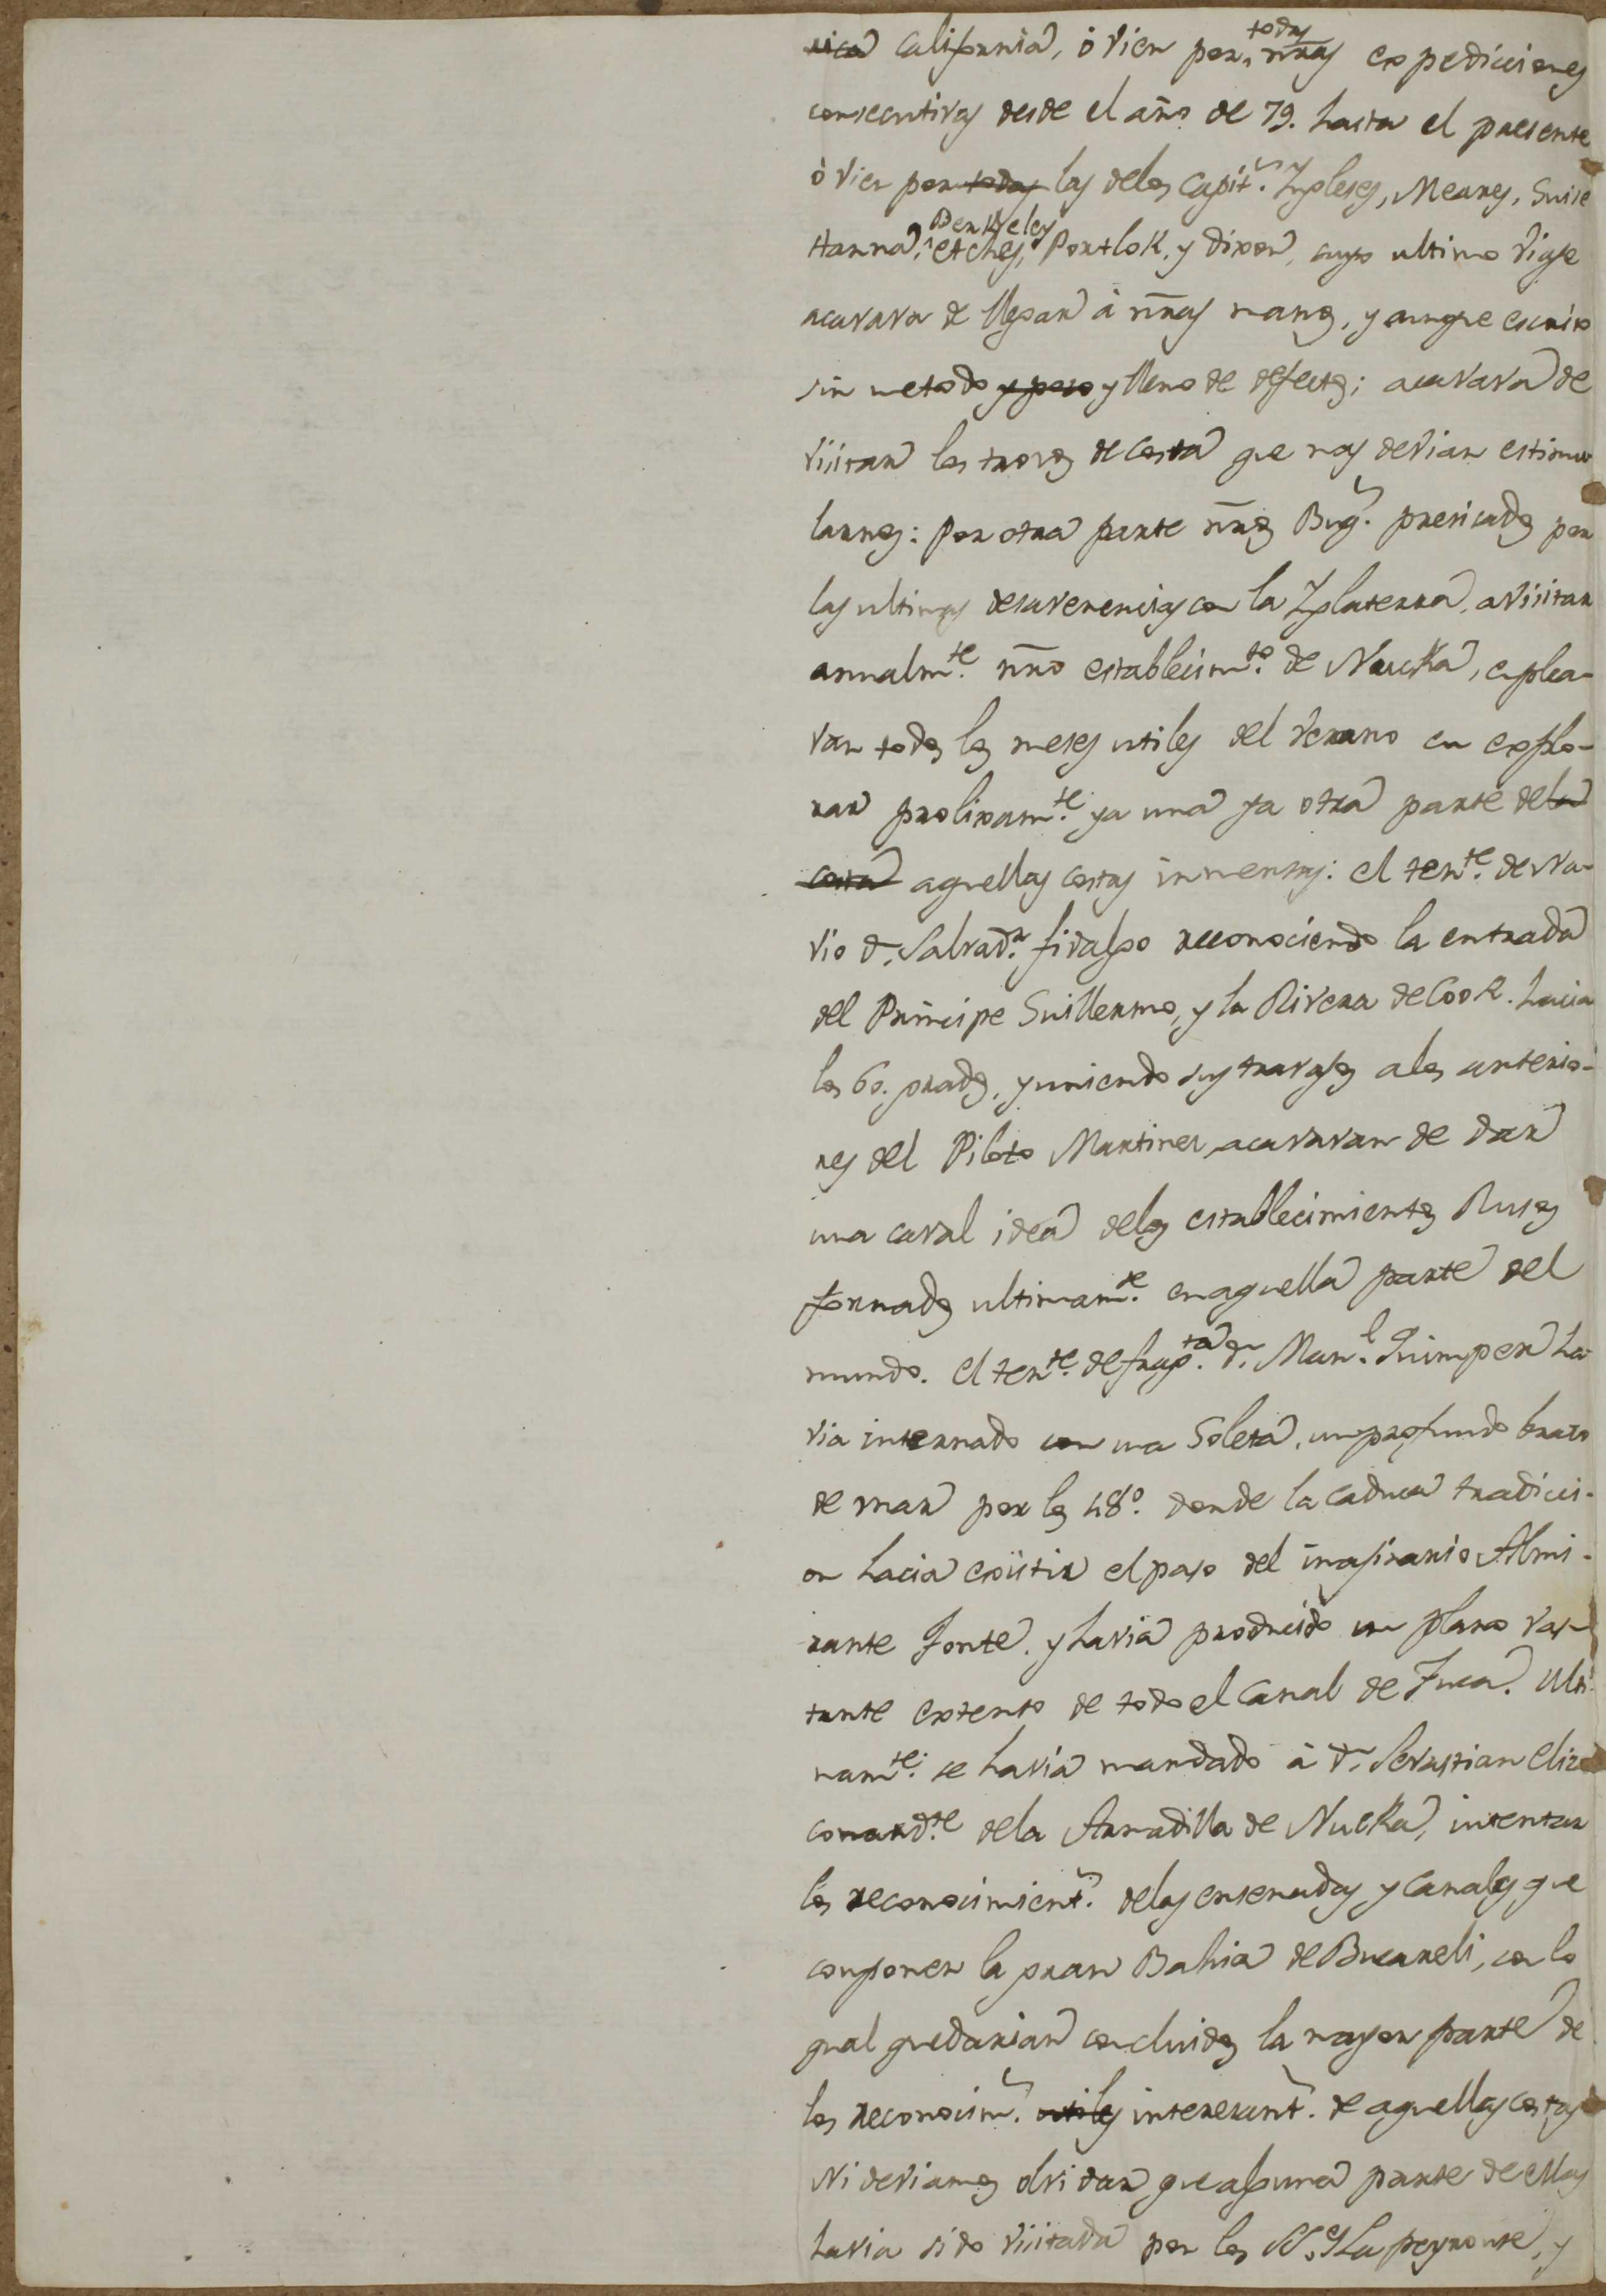 rica California, ò vien por todas ñras expediciones
consecutivas desde el año de 79. hasta el presente
ò vien por todas las delos Capit.s Ingleses, Meares, Guise
Hanna, Berkeley etches, Portlok, y dixon, cuyo ultimo viage
acavava de llegar à ñras manos, y aunque escrito
sin metodo y poco y lleno de defectos; acavava de
visitar los trozos de costa que mas devian estimu
larnos: Por otra parte ñros Buq.s precisados por
las ultimas desavenencias con la Inglaterra, avisitar
annalm.te ñro establecim.to de Nautka, emplea-
van todos los meses utiles del verano en explo-
rar prolixam.te ya una ya otra parte dela
costa aquellas costas inmensas: el ten.te de Na-
vio d.n Salvad.r fidalgo reconociendo la entrada
del Principe Guillermo, y la Rivera de Cook. hacia
los 60. grados, y uniendo sus travajos alos anterio-
res del Piloto Martinez acavavan de dar
una caval idea delos establecimientos Rusos
formados ultimam.te en aquella parte del
mundo. el ten.te de frag.ta d.n Man.l Quimper ha
via internado con una Goleta, un profundo brazo
de mar por los 48º. donde la caduca tradici-
on hacia existir el paso del imaginario Almi-
rante Fonte. y havia producido un plano vas-
tante extenso de todo el Canal de Fuca. Ulti
mam.te se havia mandado à d.n Sevastian Eliza
comand.te dela Armadilla de Nutka, intentar
los reconocimient.s delas ensenadas y Canales que
componen la gran Bahia de Bucareli, con lo
qual quedarian concluidos la mayor parte de
los reconocim.s utiles interesant.s de aquellas costas
Ni deviamos olvidar que alguna parte de ellas
havia sido visitada por los S.S. La peyrouse, y